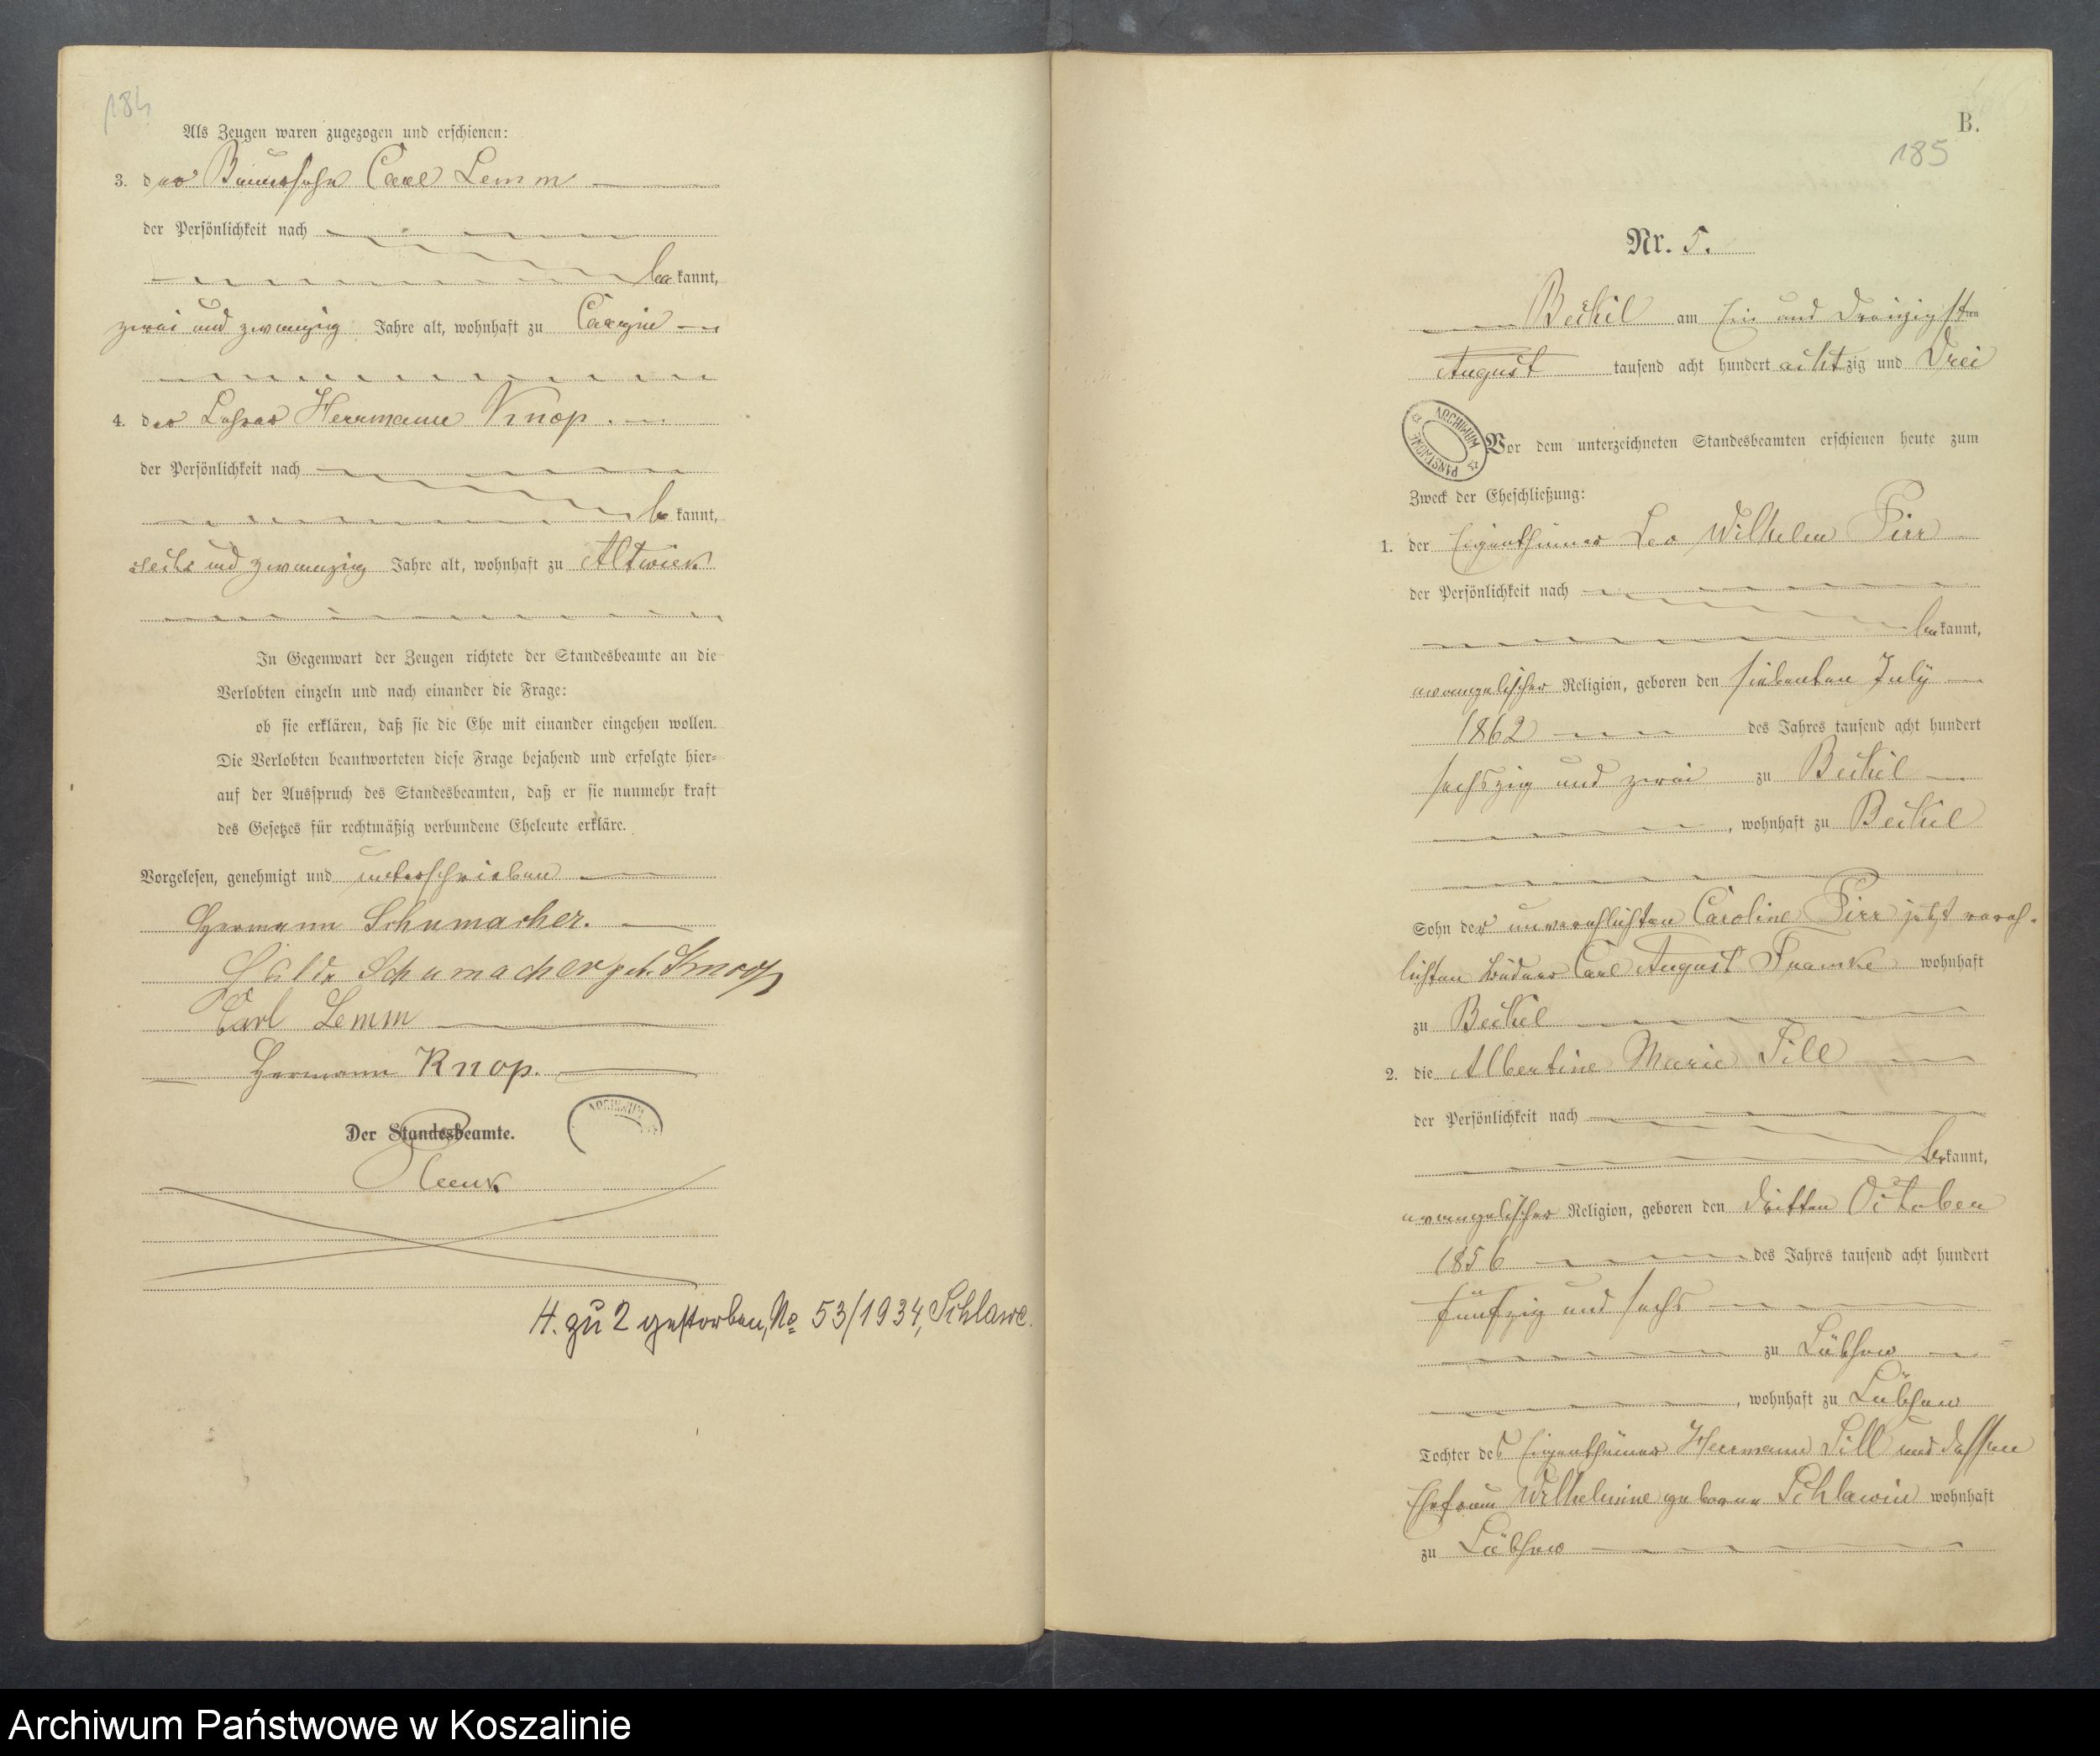 184
Als Zeugen waren zugezogen und erschienen:
3. der Bauersohn Carl Lemm
der Persönlichkeit nach
bekannt,
zwei und zwanzig Jahre alt, wohnhaft zu Cargin
4. der Lehrer Herrmann Knop.
der Persönlichkeit nach
bekannt,
sechs und zwanzig Jahre alt, wohnhaft zu Altwiek
In Gegenwart der Zeugen richtete der Standesbeamte an die
Verlobten einzeln und nach einander die Frage:
ob sie erklären, daß sie die Ehe mit einander eingehen wollen.
Die Verlobten beantworteten diese Frage bejahend und erfolgte hier-
auf der Ausspruch des Standesbeamten, daß er sie nunmehr kraft
des Gesetzes für rechtmäßig verbundene Eheleute erkläre.
Vorgelesen, genehmigt und unterschrieben
Hermann Schumacher.
Schumacher geb. Knop
Carl Lemm
Hermann Knop.
Der Standesbeamte.
ARCHIWUM
H. zu 2 gestorben, No 53/1934, Schlawe.
B.
185
Nr. 5.
Beckel am Ein und dreißigsten
August tausend acht hundert achtzig und Drei
ARCHIWUM PAŃSTWOWE
Vor dem unterzeichneten Standesbeamten erschienen heute zum
Zweck der Eheschließung:
1. der Eigenthümer Leo Wilhelm Pirr
der Persönlichkeit nach
bekannt,
evangelischer Religion, geboren den siebenten July
1862 des Jahres tausend acht hundert
sechszig und zwei zu Beckel
, wohnhaft zu Beckel
Sohn der unverehlichten Caroline Pirr jetzt vereh-
lichten Büdner Carl August wohnhaft
zu Beckel
2. die Albertine Marie Sill
der Persönlichkeit nach
bekannt,
evangelischer Religion, geboren den dritten October
1856 des Jahres tausend acht hundert
fünfzig und sechs
zu Lübzow
, wohnhaft zu Lübzow
Tochter des Eigenthümer Herrmann Sill und dessen
Ehefrau Wilhelmine geborne Schlawin wohnhaft
zu Lübzow
Archiwum Państwowe w Koszalinie